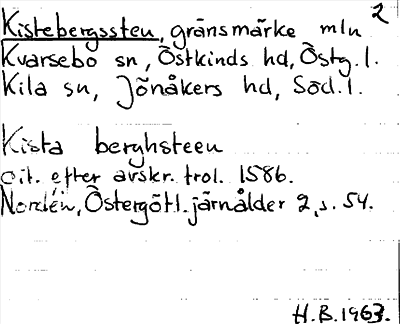 2
Kistebergssten, gränsmärke mln
Kvarsebo sn, Östkinds hd, Östg. l.
Kila sn, Jönåkers hd, Söd. l.
Kista berghsteen
cit. efter avskr. trol. 1586.
Nordén, Östergötl. järnålder 2, s. 54.
H.B. 1963.